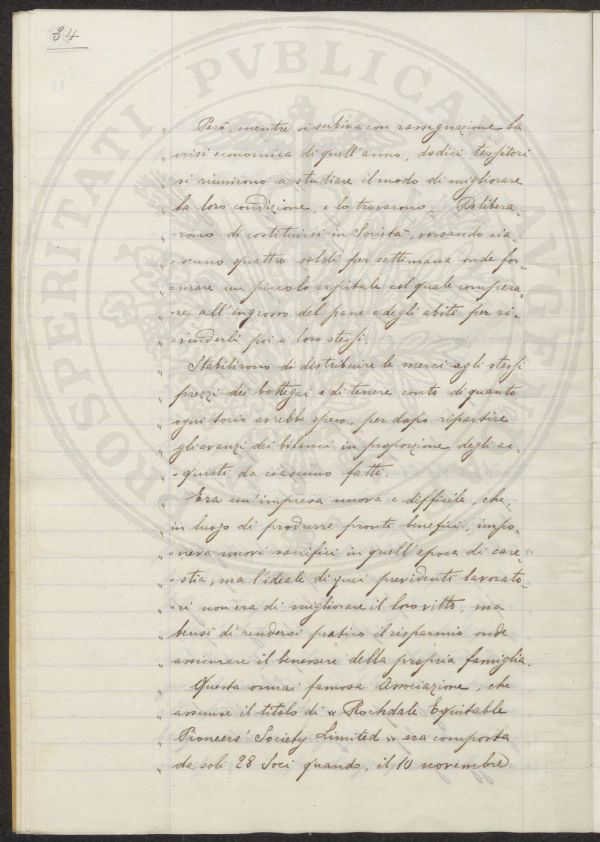 34
" Però, mentre si subiva con rassegnazione la
" crisi economica di quell'anno, dodici tessitori
" si riunirono a studiare il modo di migliorare
" la loro condizione, e lo trovarono. Delibera-
" -rono di costituirsi in Società, versando cia-
" -scuno quattro soldi per settimana onde for-
" -mare un piccolo capitale col quale compera-
" -re all'ingrosso del pane e degli abiti per ri-
" -venderli poi a loro stessi.
" Stabilirono di distribuire le merci agli stessi
" prezzi dei bottegai e di tenere conto di quanto
" ogni socio avrebbe speso, per dopo ripartire
" gli avanzi dei bilanci in proporzione degli ac-
" -quisti da ciascuno fatti.
" Era un'impresa nuova e difficile, che
" in luogo di produrre pronti benefici, impo-
" neva nuovi sacrifici in quell'epoca di care-
" -stia, ma l'ideale di quei previdenti lavorato-
" -ri non era di migliorare il loro vitto, ma
" bensì di rendersi pratico il risparmio onde
" assicurare il benessere della propria famiglia.
" Questa ormai famosa Associazione, che
" assunse il titolo di « Rochdale Equitable
" Pioneers' Society Limited » era composta
" da soli 28 Soci quando, il 10 novembre
PROSPERITATI PVBLICAE AVGENDAE